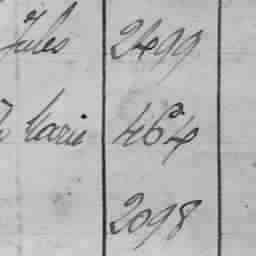 Jules 2499
Marie 464
2098